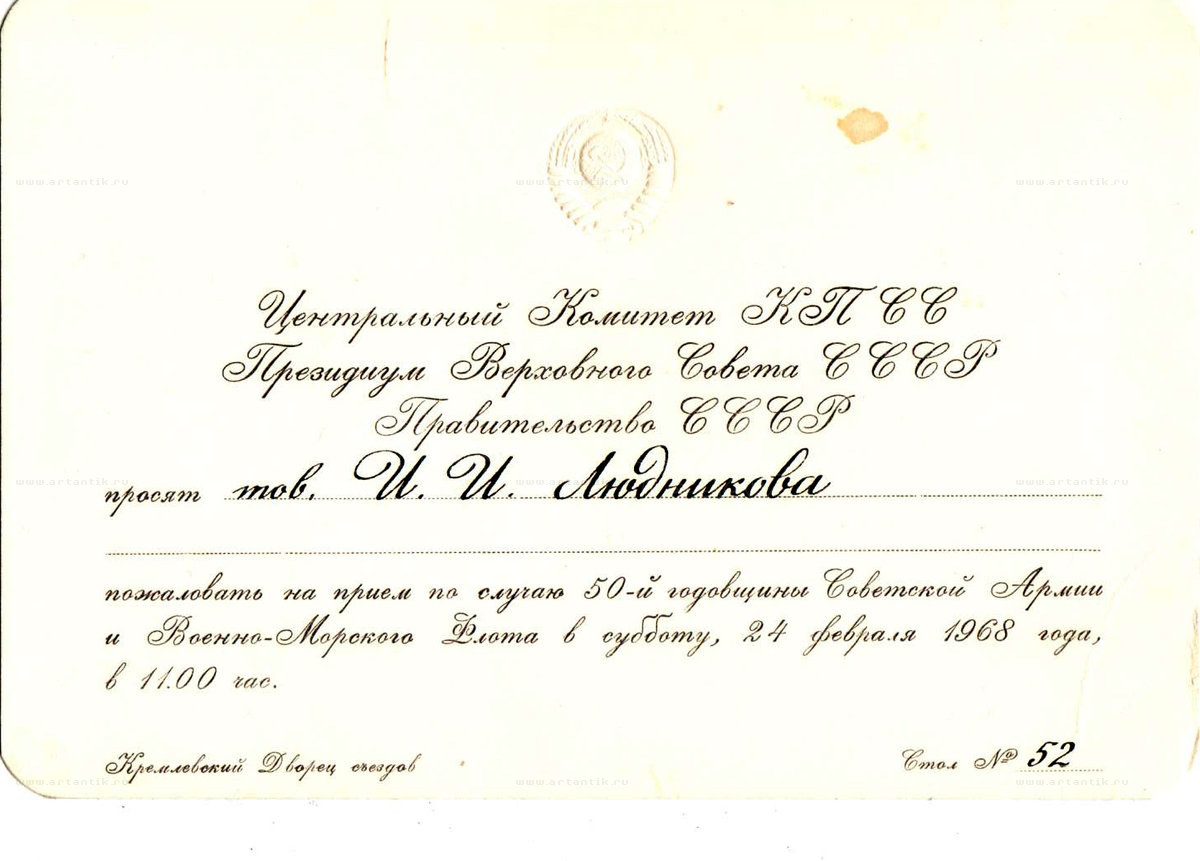 Центральный Комитет КПСС
Президиум Верховного Совета СССР
Правительство СССР
просят тов. И. И. Людникова
пожаловать на прием по случаю 50-й годовщины Советской Армии
и Военно-Морского Флота в субботу, 24 февраля 1968 года,
в 11.00 час.
Кремлевский Дворец съездов Стол № 52
www.artantik.ru www.artantik.ru www.artantik.ru
www.artantik.ru www.artantik.ru www.artantik.ru
www.artantik.ru www.artantik.ru www.artantik.ru